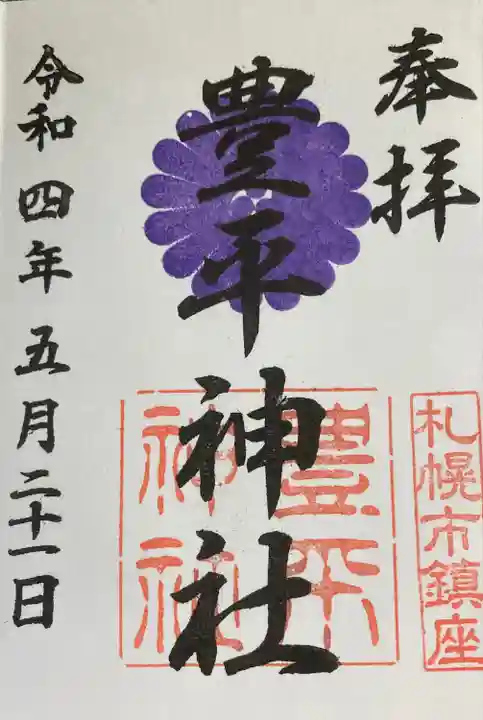 奉拝
札幌市鎮座
豊平神社
豊平
神社
令和四年五月二十一日